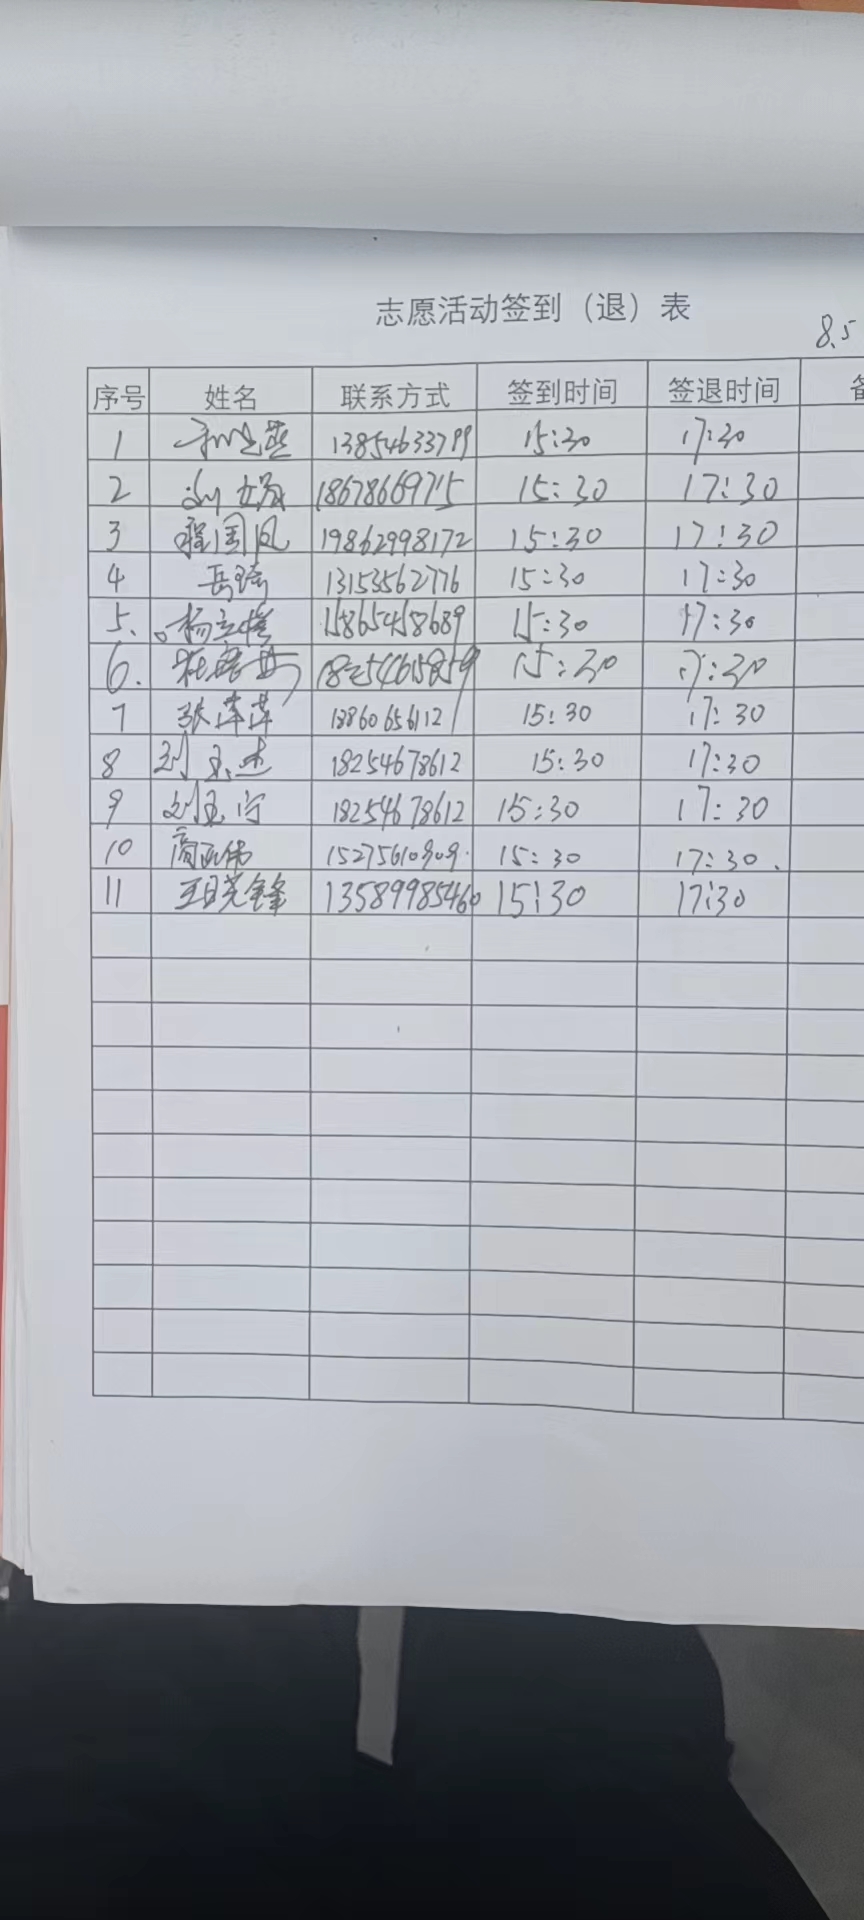 志愿活动签到（退）表
8.5
序号 姓名 联系方式 签到时间 签退时间 备
1 13854633799 15:30 17:30
2 18678669715 15:30 17:30
3 程国风 19862998172 15:30 17:30
4 岳琦 13153562776 15:30 17:30
5. 杨立 15865458689 15:30 17:30
6. 18254615859 15:30 17:30
7 张萍萍 13860656112 15:30 17:30
8 刘玉 18254678612 15:30 17:30
9 刘玉宁 18254678612 15:30 17:30
10 商 伟 15275610909. 15:30 17:30.
11 王 锋 13589985460 15:30 17:30